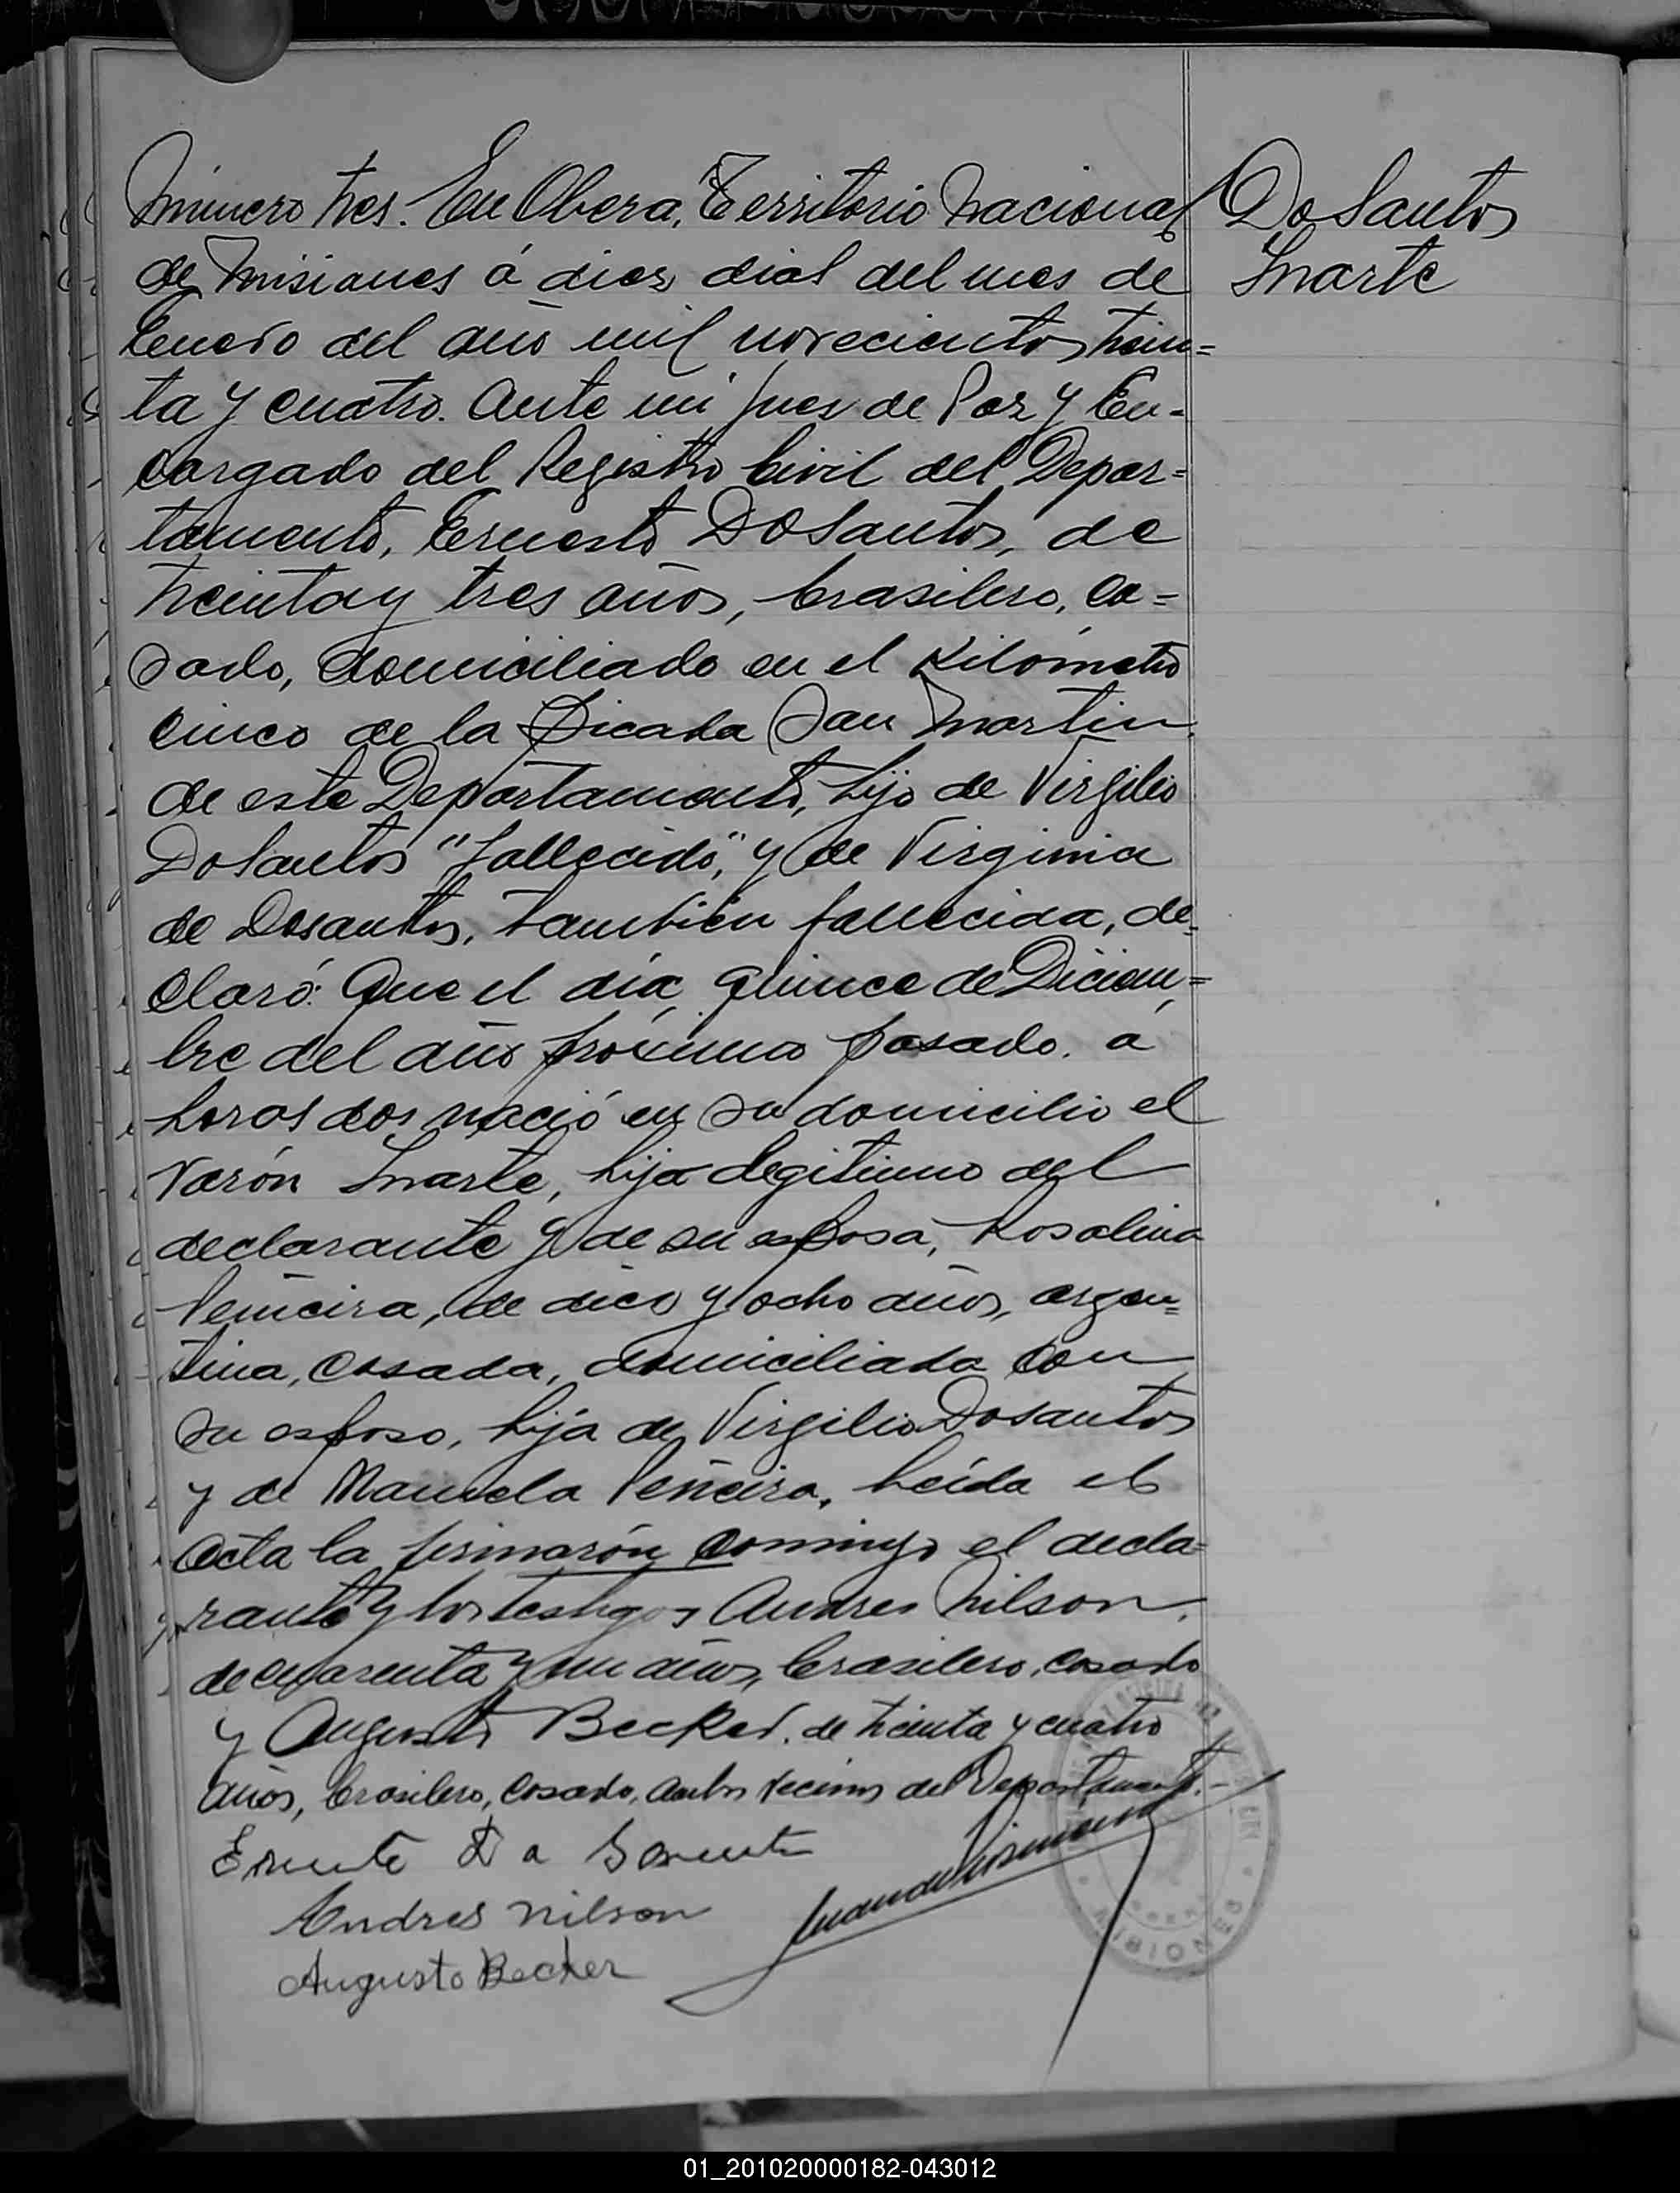 Número tres. En Obera, Territorio Nacional
de Misiones á diez dias del mes de
Enero del año mil novecientos trein=
ta y cuatro. Ante mi Juez de Paz y En-
cargado del Registro Civil del Depar=
tamento, Ernesto DoSantos, de
treinta y tres años, brasilero, ca=
sado, domiciliado en el Kilómetro
cinco de la Picada San Martin
de este Departamento, hijo de Virgilio
DoSantos "fallecido", y de Virginia
de Dosantos, también fallecida, de=
claró: Que el día quince de Diciem=
bre del año próximo pasado, á
horas dos nació en su domicilio el
varón Inarte, hijo legitimo del
declarante y de su esposa, Rosalina
Peñeira, de dies y ocho años, argen=
tina, casada, domiciliada con
su esposo, hija de Virgilio Dosantos
y de Manuela Peñeira. Leída el
acta la firmarón conmigo el decla=
rante y los testigos Andres Nilson,
de cuarenta y un años, brasilero, casado
y Augusto Becker, de treinta y cuatro
años, brasilero, casado, ambos vecinos del Departamento.-
Andres Nilson
Augusto Becker
DoSantos
Inarte
MISIONES
01_201020000182-043012